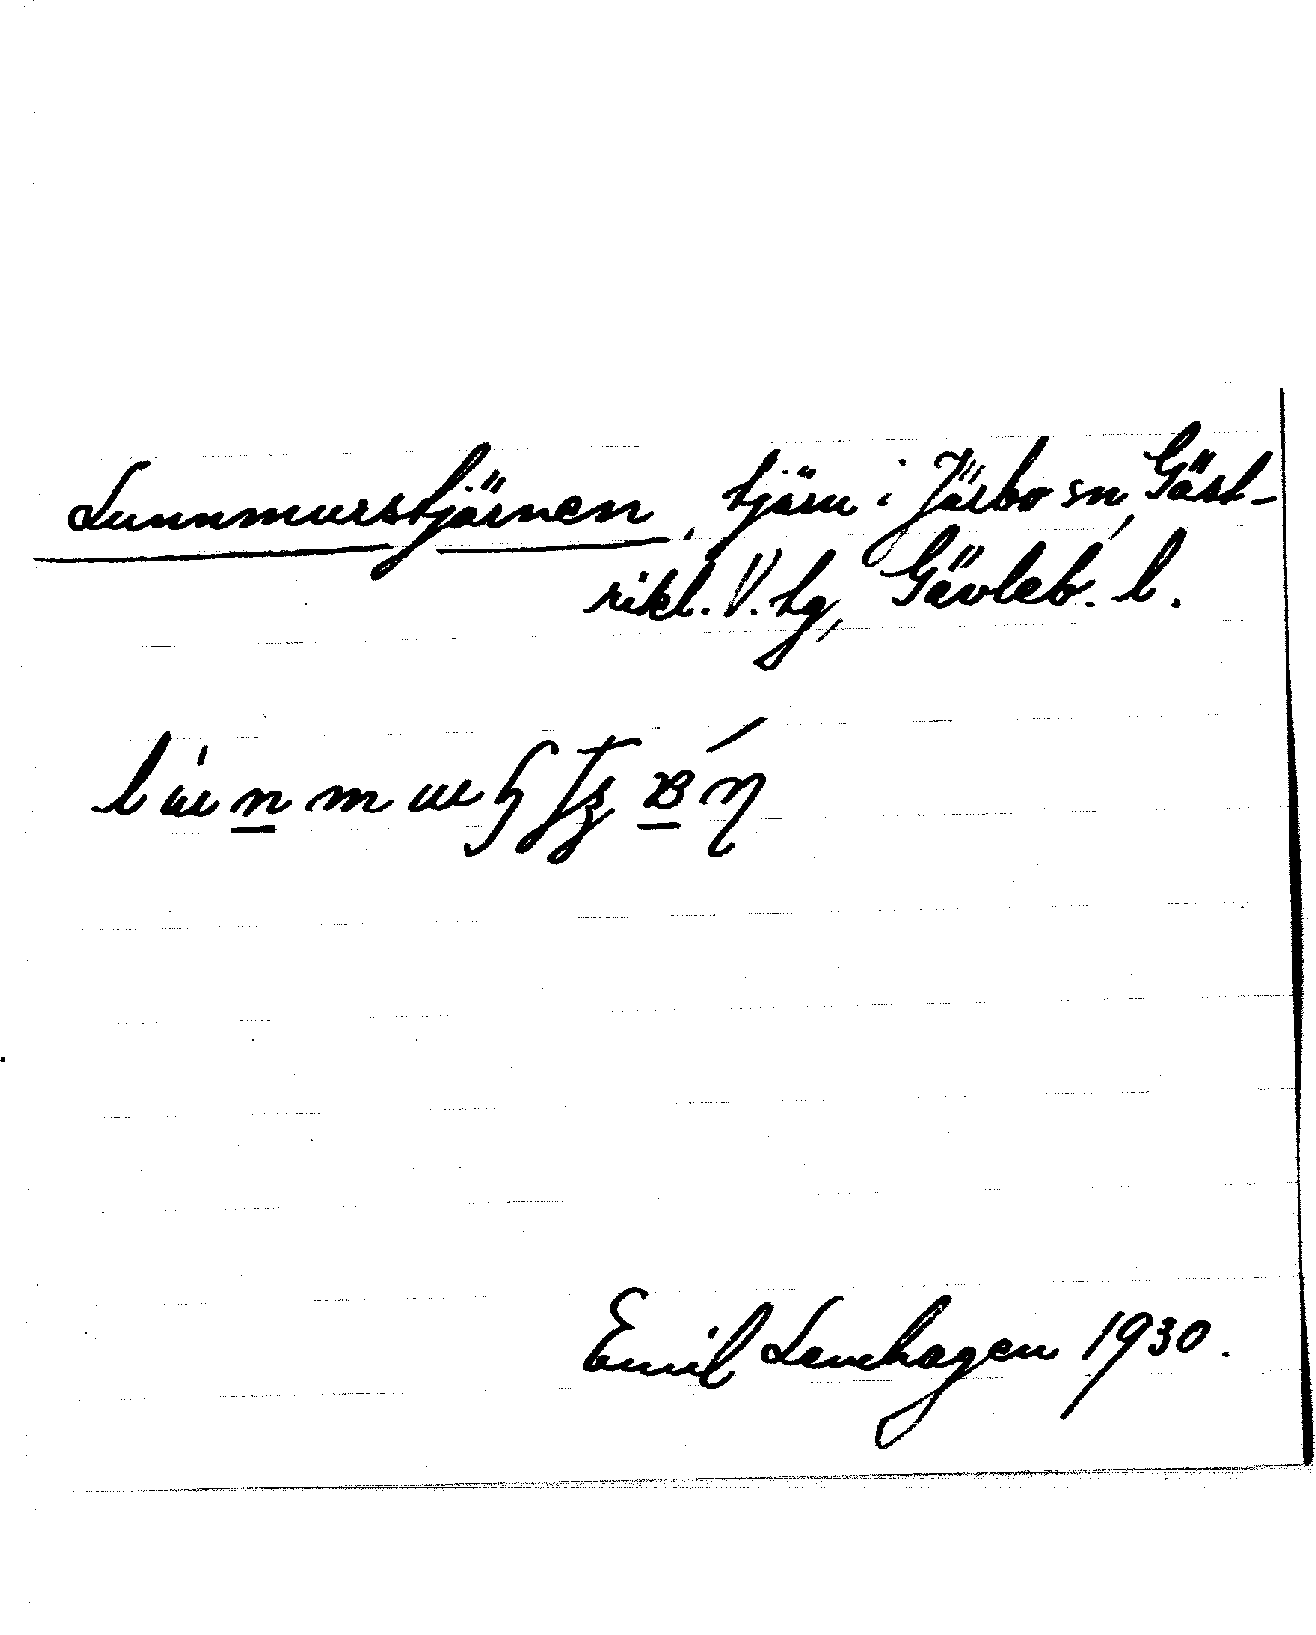 Lunnmurstjärnen, tjärn i Järbo sn, Gäst-
rikl. V. tg, Gävleb. l.
Emil Lenhagen 1930.